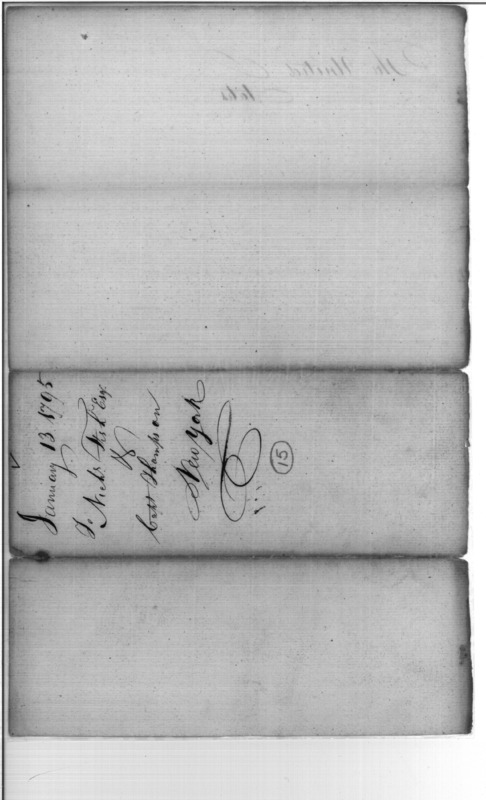 January 13 1795
To Nichs Fish Esq.
&
Capt Thompson
New York
15
the United
States